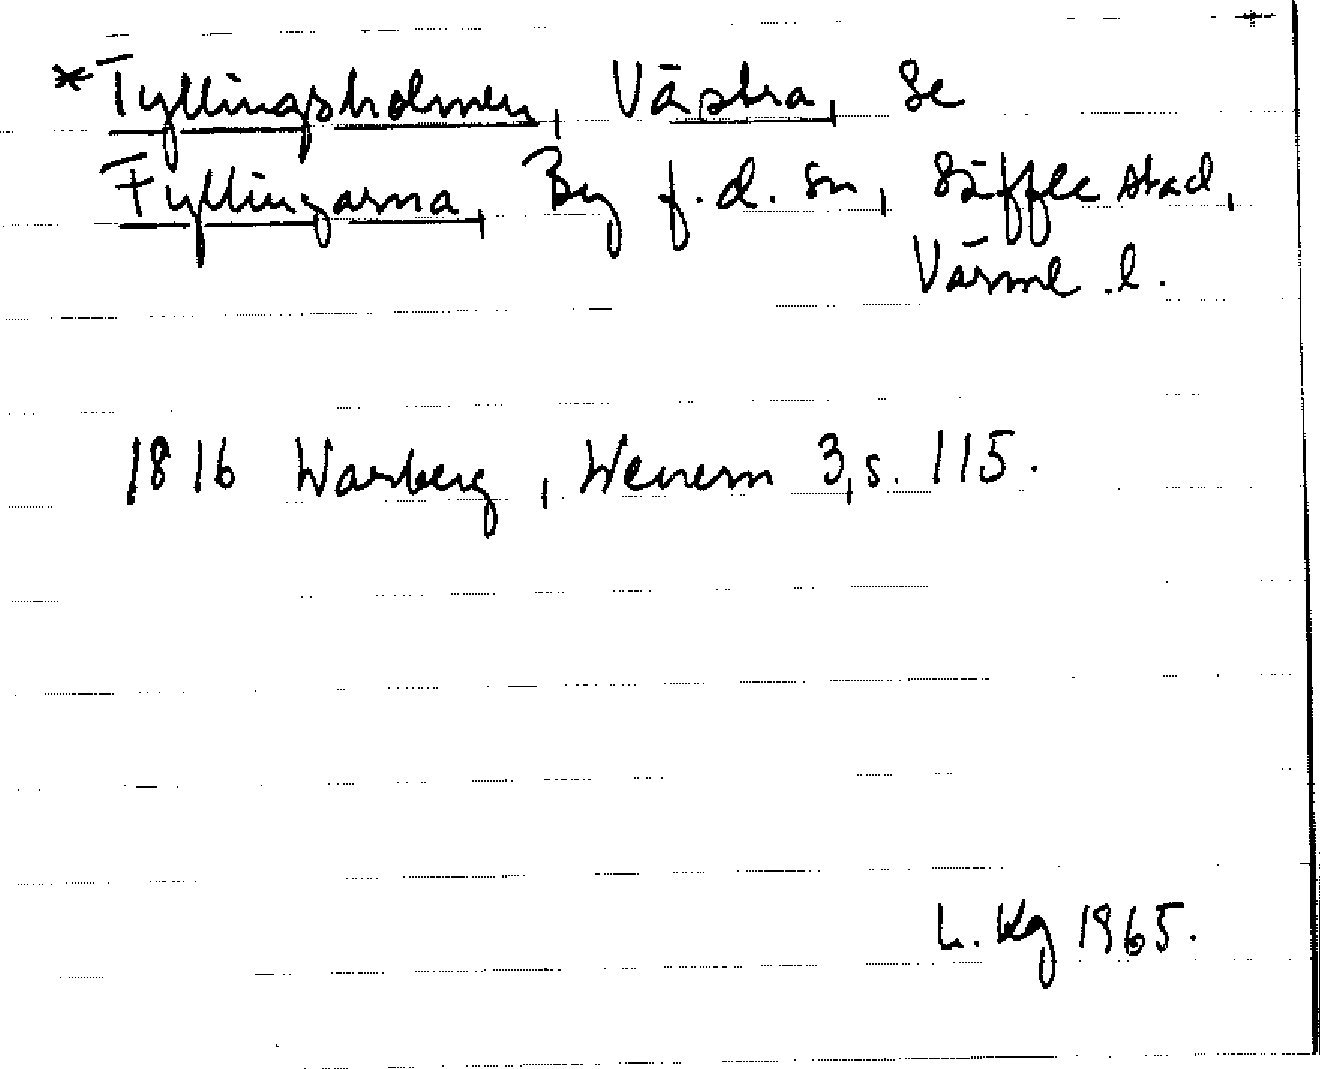 *Tyllingsholmen, Västra, se
Fyllingarna, By f.d. sn, Säffle stad,
Värml. l.
1816 Warberg, Wenern 3, s. 115.
L. Kg 1965.